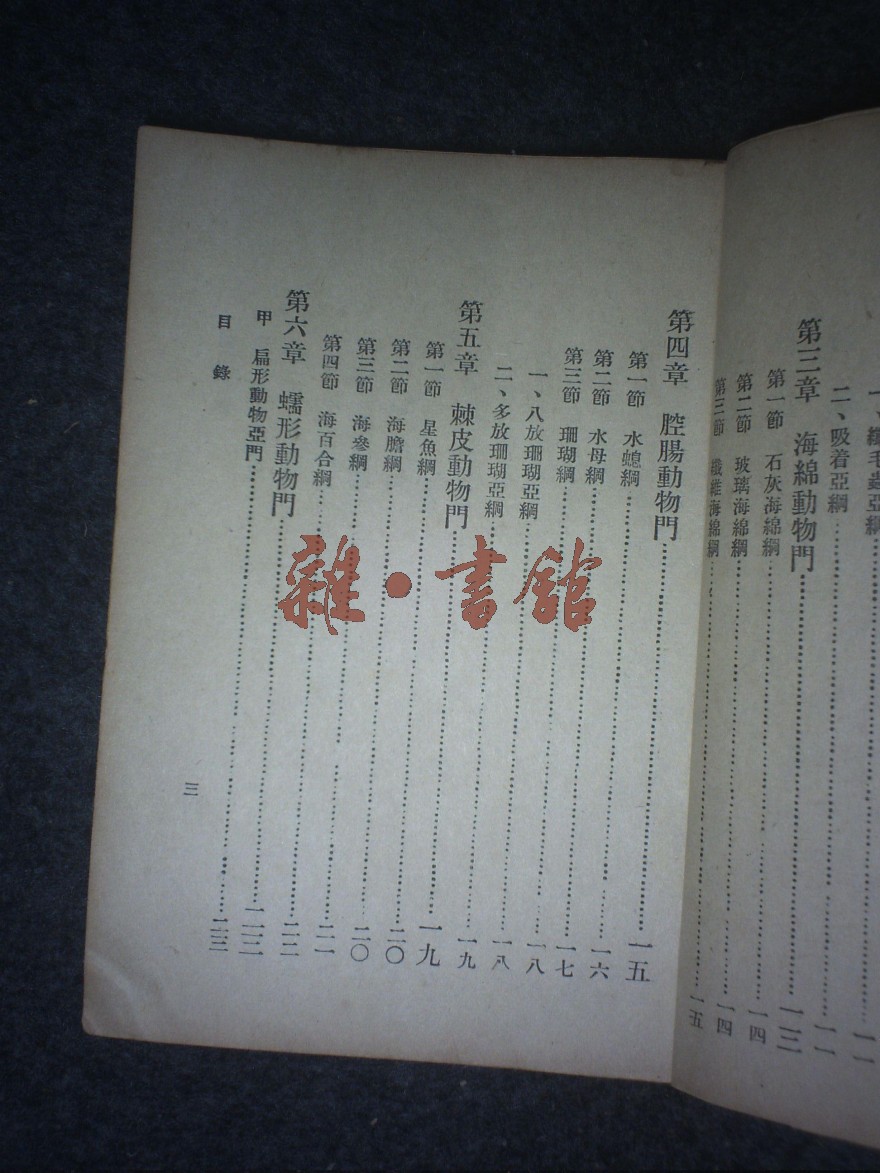 一、纖毛蟲亞綱……一一
二、吸着亞綱……一一
第三章 海綿動物門……一三
第一節 石灰海綿綱……一四
第二節 玻璃海綿綱……一四
第三節 纖維海綿綱……一五
第四章 腔腸動物門……一五
第一節 水螅綱……一六
第二節 水母綱……一七
第三節 珊瑚綱……一八
一、八放珊瑚亞綱……一八
二、多放珊瑚亞綱……一九
第五章 棘皮動物門……一九
第一節 星魚綱……二〇
第二節 海膽綱……二〇
第三節 海參綱……二一
第四節 海百合綱……二二
第六章 蠕形動物門……二二
甲 扁形動物亞門……二三
目錄
三
雜·書館